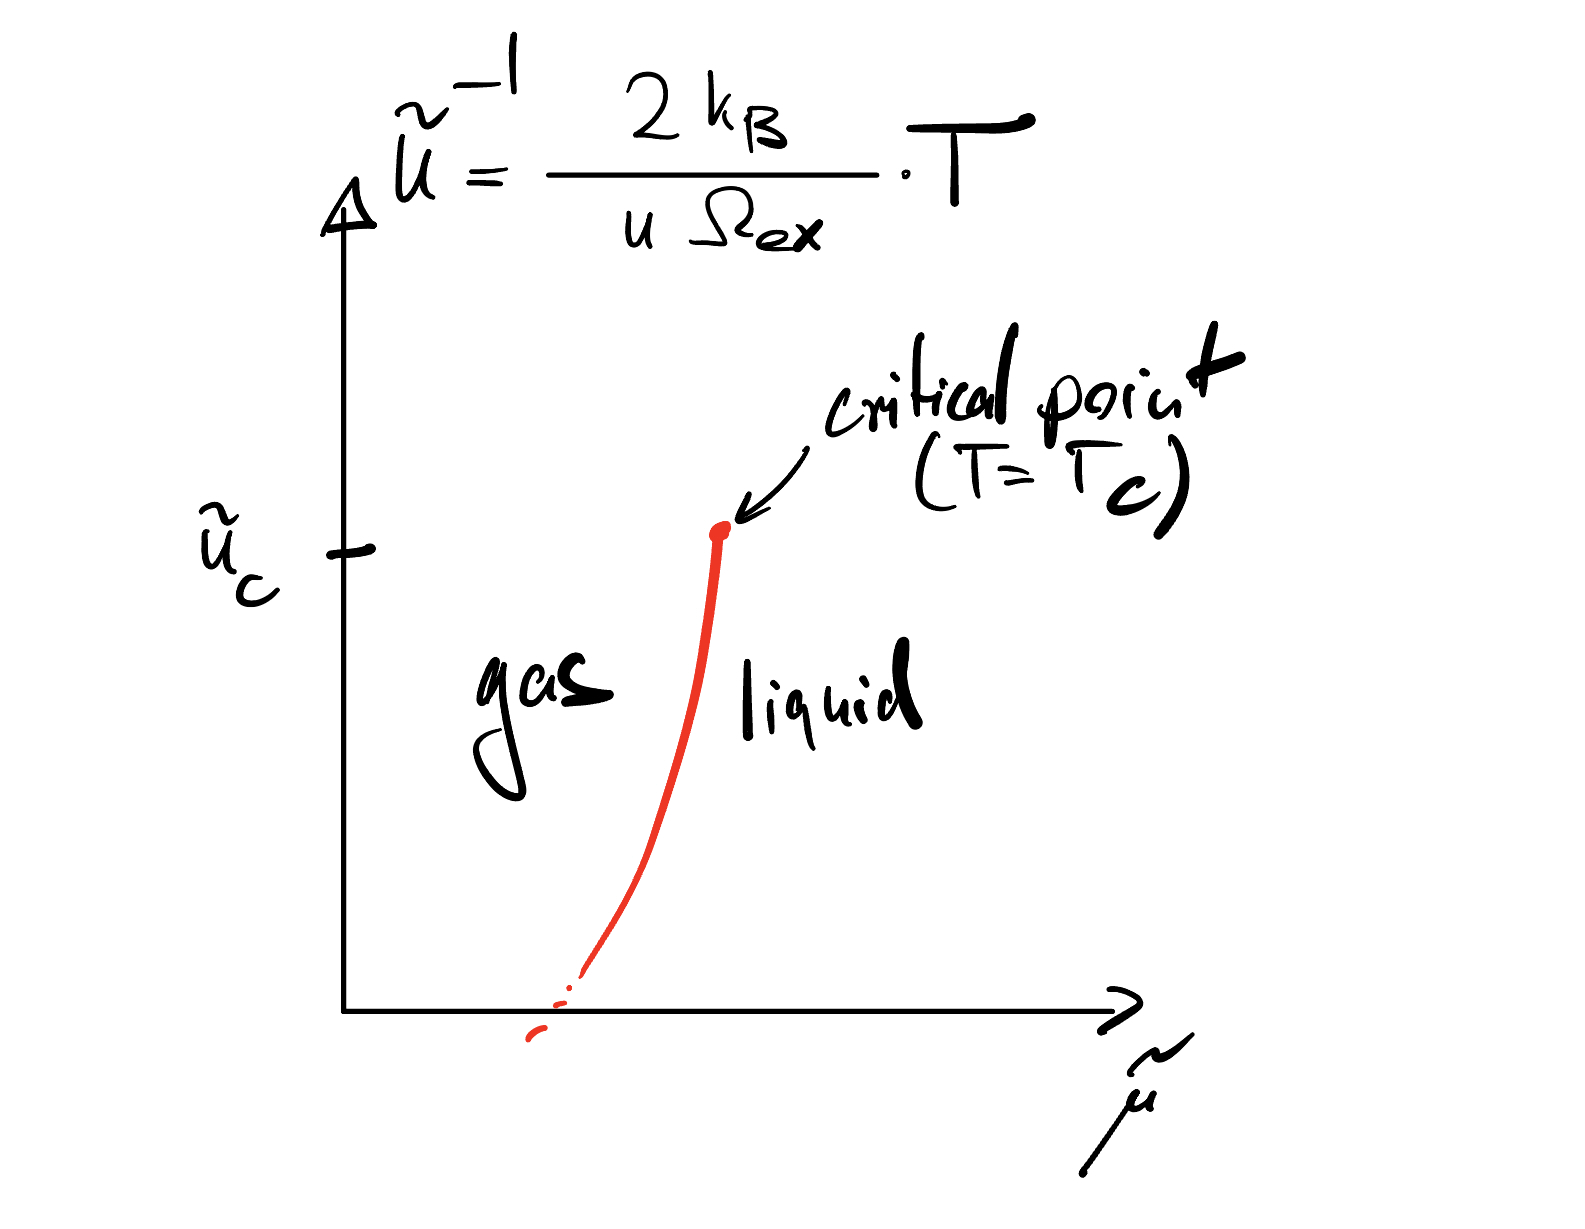 ũ⁻¹ = 2 k_B / u Ω_ex · T
critical point
(T = T_c)
ũ_c
gas
liquid
μ̃